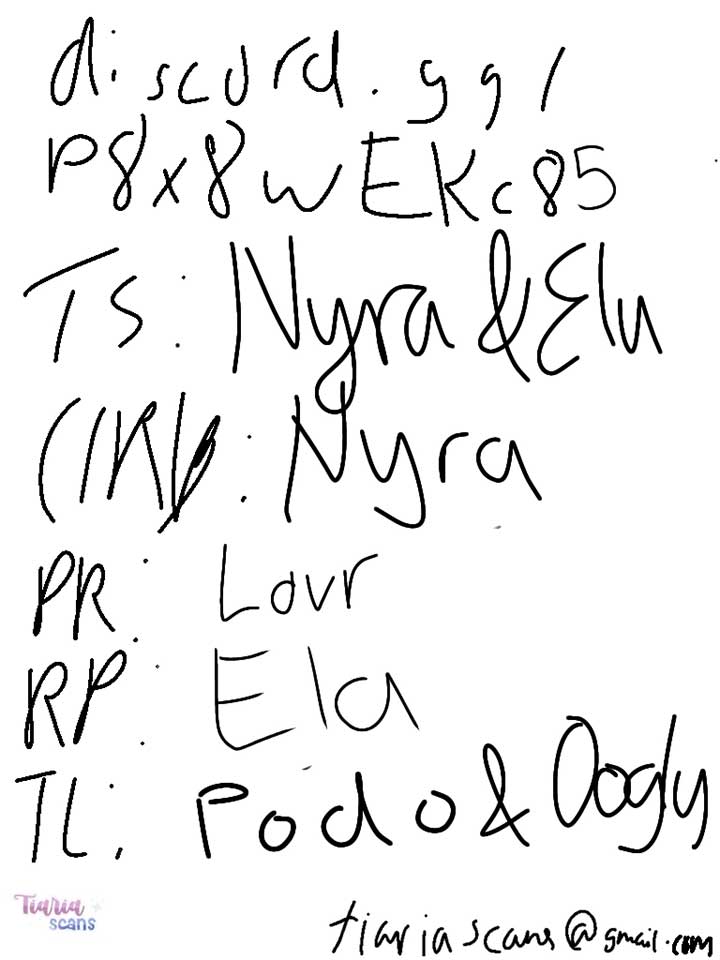 discord.gg/
P8x8wEKc85
TS: Nyra & Ela
CLRD: Nyra
PR: Lovr
RP: Ela
TL: Podo & Oogly
Tiaria
scans
tiariascans@gmail.com